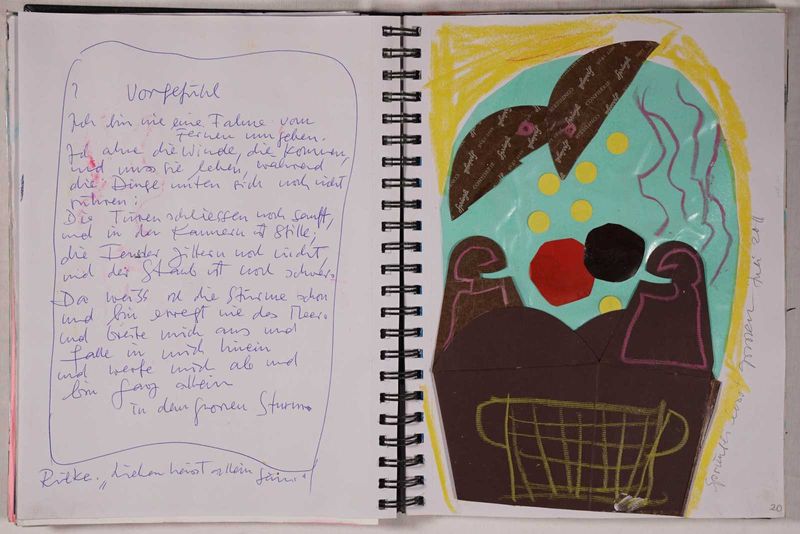 ?
Vorgefühl
Ich bin wie eine Fahne von
Fernen umgeben.
Ich ahne die Winde, die kommen,
und muss sie leben, während
die Dinge unten sich noch nicht
rühren:
Die Türen schliessen noch sanft,
und in den Kaminen ist Stille;
die Fenster zittern noch nicht,
und der Staub ist noch schwer.
Da weiss ich die Stürme schon
und bin erregt wie das Meer.
und breite mich aus und
falle in mich hinein
und werfe mich ab und
bin ganz allein
in dem grossen Sturm.
Rilke. „Lieben heisst allein sein."
Juli 2011
20